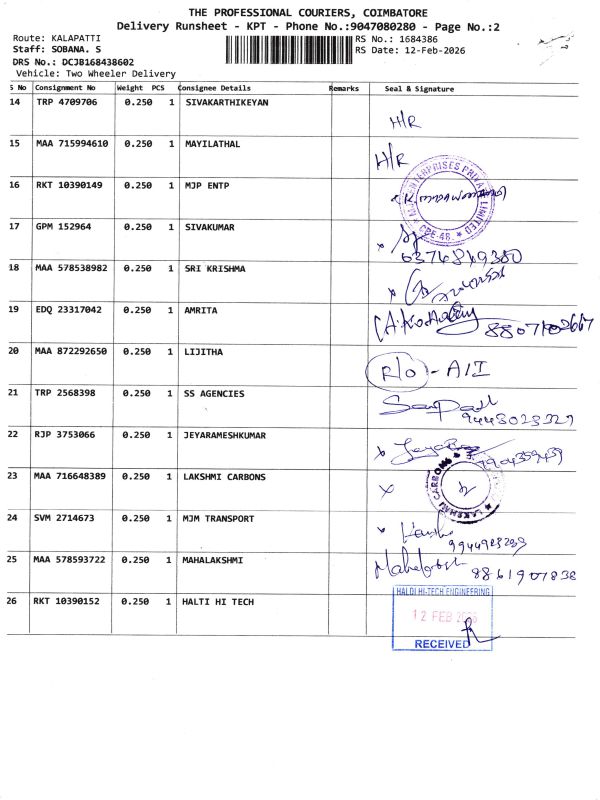 THE PROFESSIONAL COURIERS, COIMBATORE
Delivery Runsheet - KPT - Phone No.:9047080280 - Page No.:2
Route: KALAPATTI
RS No.: 1684386
Staff: SOBANA. S
RS Date: 12-Feb-2026
DRS No.: DCJB168438602
Vehicle: Two Wheeler Delivery
S No Consignment No Weight PCS Consignee Details Remarks Seal & Signature
14 TRP 4709706 0.250 1 SIVAKARTHIKEYAN H/R
15 MAA 715994610 0.250 1 MAYILATHAL H/R
16 RKT 10390149 0.250 1 MJP ENTP ENTERPRISES PRIVATE LIMITED CBE-48.
17 GPM 152964 0.250 1 SIVAKUMAR
18 MAA 578538982 0.250 1 SRI KRISHMA
19 EDQ 23317042 0.250 1 AMRITA
20 MAA 872292650 0.250 1 LIJITHA R/O - A/I
21 TRP 2568398 0.250 1 SS AGENCIES
22 RJP 3753066 0.250 1 JEYARAMESHKUMAR
23 MAA 716648389 0.250 1 LAKSHMI CARBONS LAKSHMI CARBONS
24 SVM 2714673 0.250 1 MJM TRANSPORT
25 MAA 578593722 0.250 1 MAHALAKSHMI
26 RKT 10390152 0.250 1 HALTI HI TECH HALDI HI-TECH ENGINEERING
12 FEB
RECEIVED